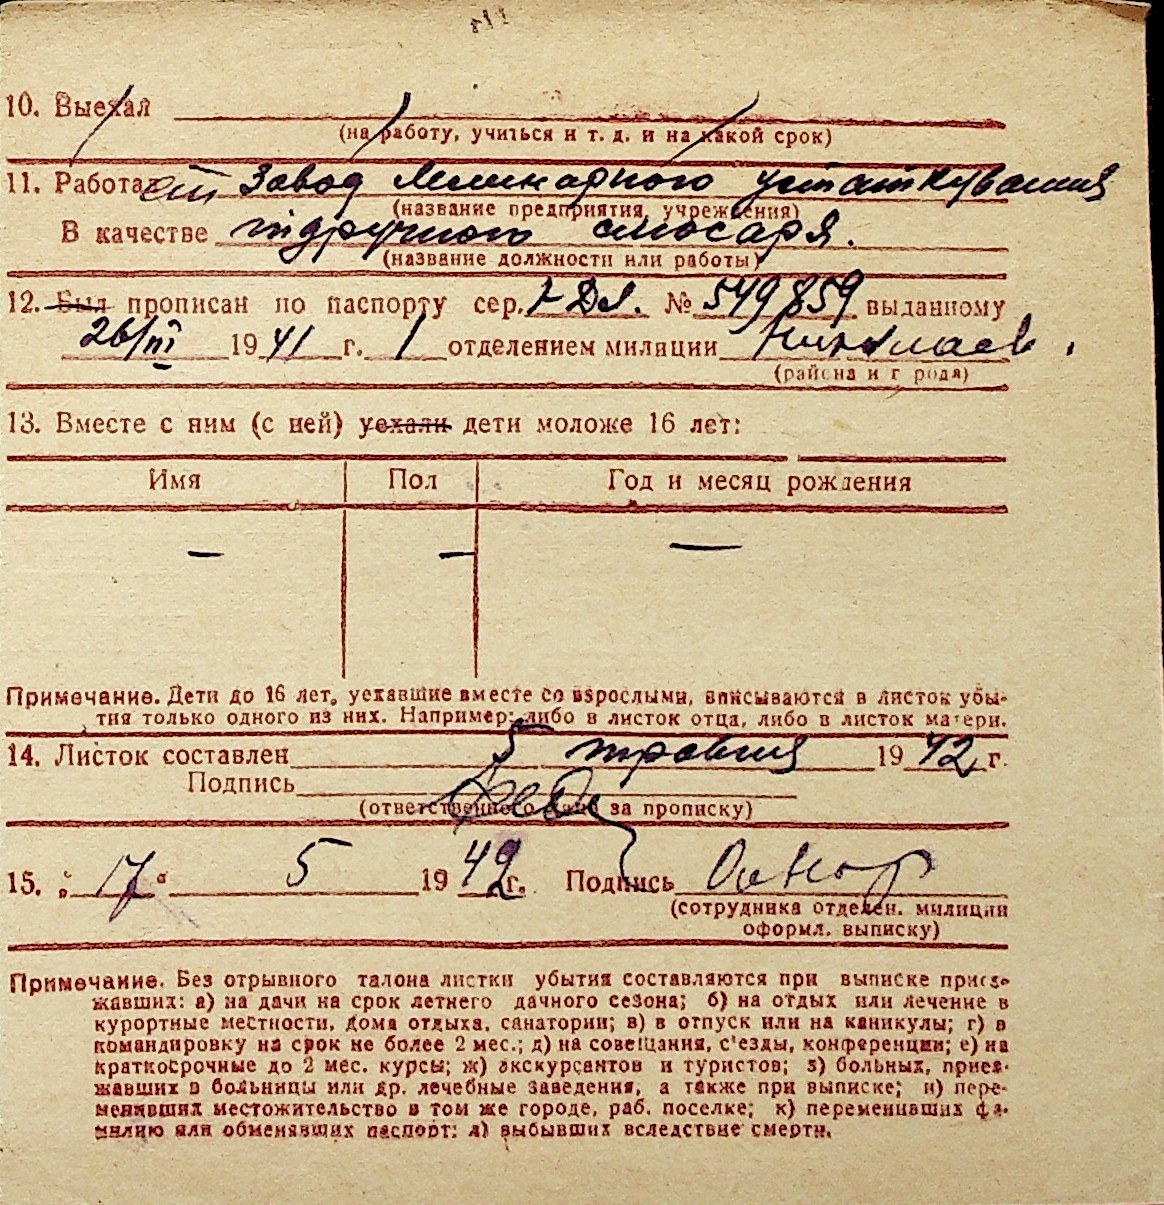 10. Выехал
(на работу, учиться и т. д. и на какой срок)
11. Работает Завод Млинарного устаткування
(название предприятия, учреждения)
В качестве підручного слюсаря.
(название должности или работы)
12. Был прописан по паспорту сер. I-ДЯ. № 549859 выданному
26/III 1941 г. 1 отделением милиции Николаев.
(района и г рода)
13. Вместе с ним (с ней) уехали дети моложе 16 лет:
Имя Пол Год и месяц рождения
— — —
Примечание. Дети до 16 лет, уехавшие вместе со взрослыми, вписываются в листок убы-
тия только одного из них. Например: либо в листок отца, либо в листок матери.
14. Листок составлен 5 травня 1942 г.
Подпись
(ответственного лица за прописку)
15. „ 17 " 5 1942 г. Подпись
(сотрудника отделен. милиции
оформл. выписку)
Примечание. Без отрывного талона листки убытия составляются при выписке приез-
жавших: а) на дачи на срок летнего дачного сезона; б) на отдых или лечение в
курортные местности, дома отдыха, санатории; в) в отпуск или на каникулы; г) в
командировку на срок не более 2 мес.; д) на совещания, с'езды, конференции; е) на
краткосрочные до 2 мес. курсы; ж) экскурсантов и туристов; з) больных, приез-
жавших в больницы или др. лечебные заведения, а также при выписке; и) пере-
менивших местожительство в том же городе, раб. поселке; к) переменивших фа-
милию или обменявших паспорт; л) выбывших вследствие смерти.